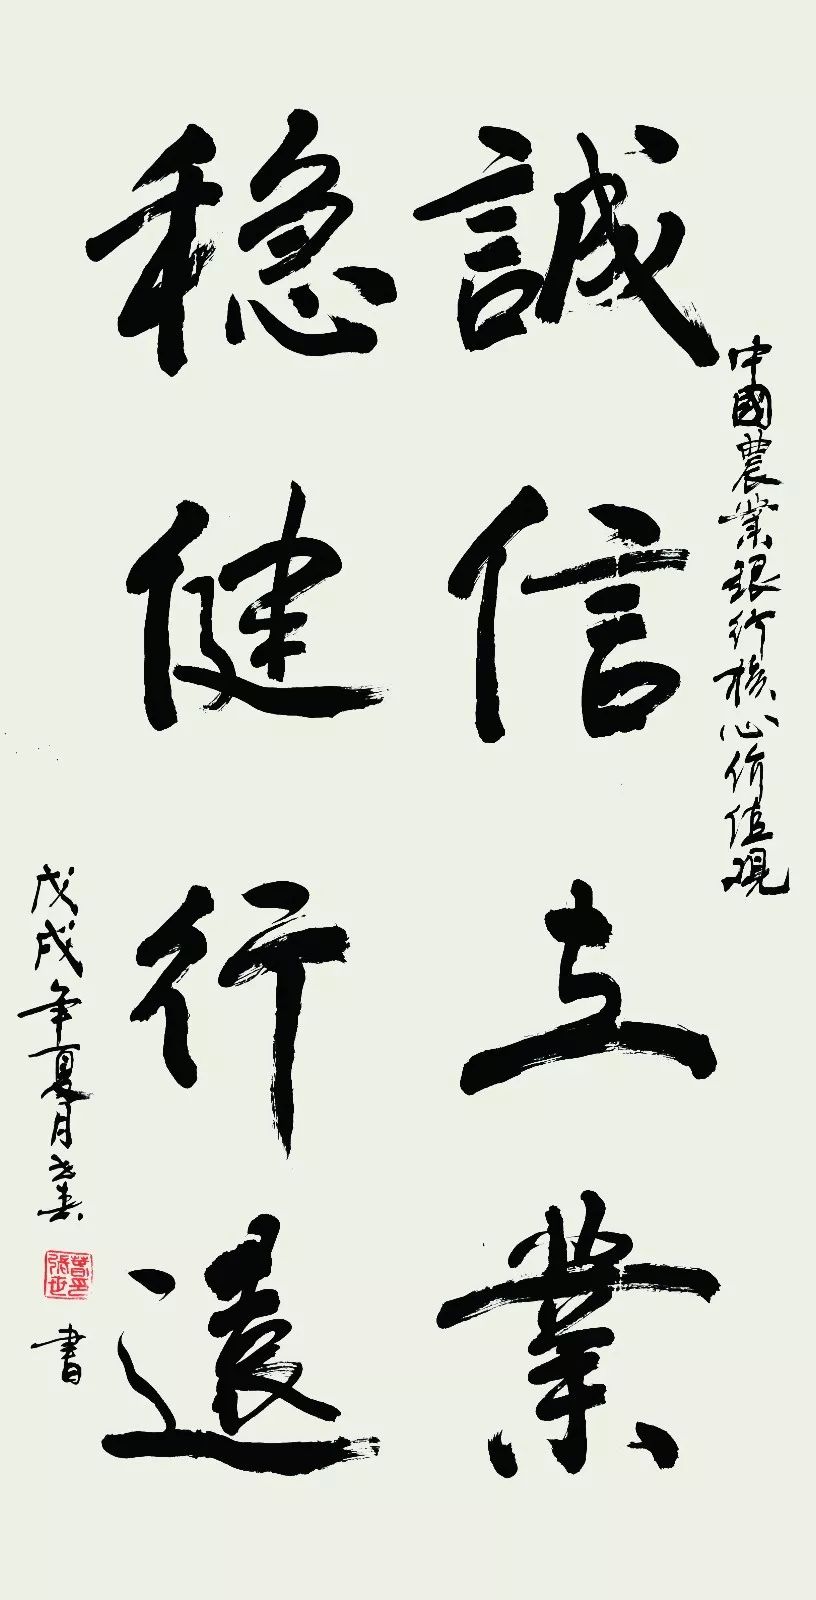 中國農業銀行核心价值观
誠信立業
稳健行遠
戊戌年夏月世春
書